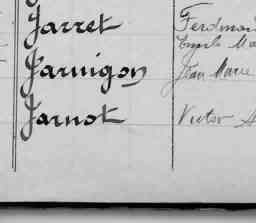 Jarret Ferdinand
Jarnigon Jean Marie
Jarnot Victor